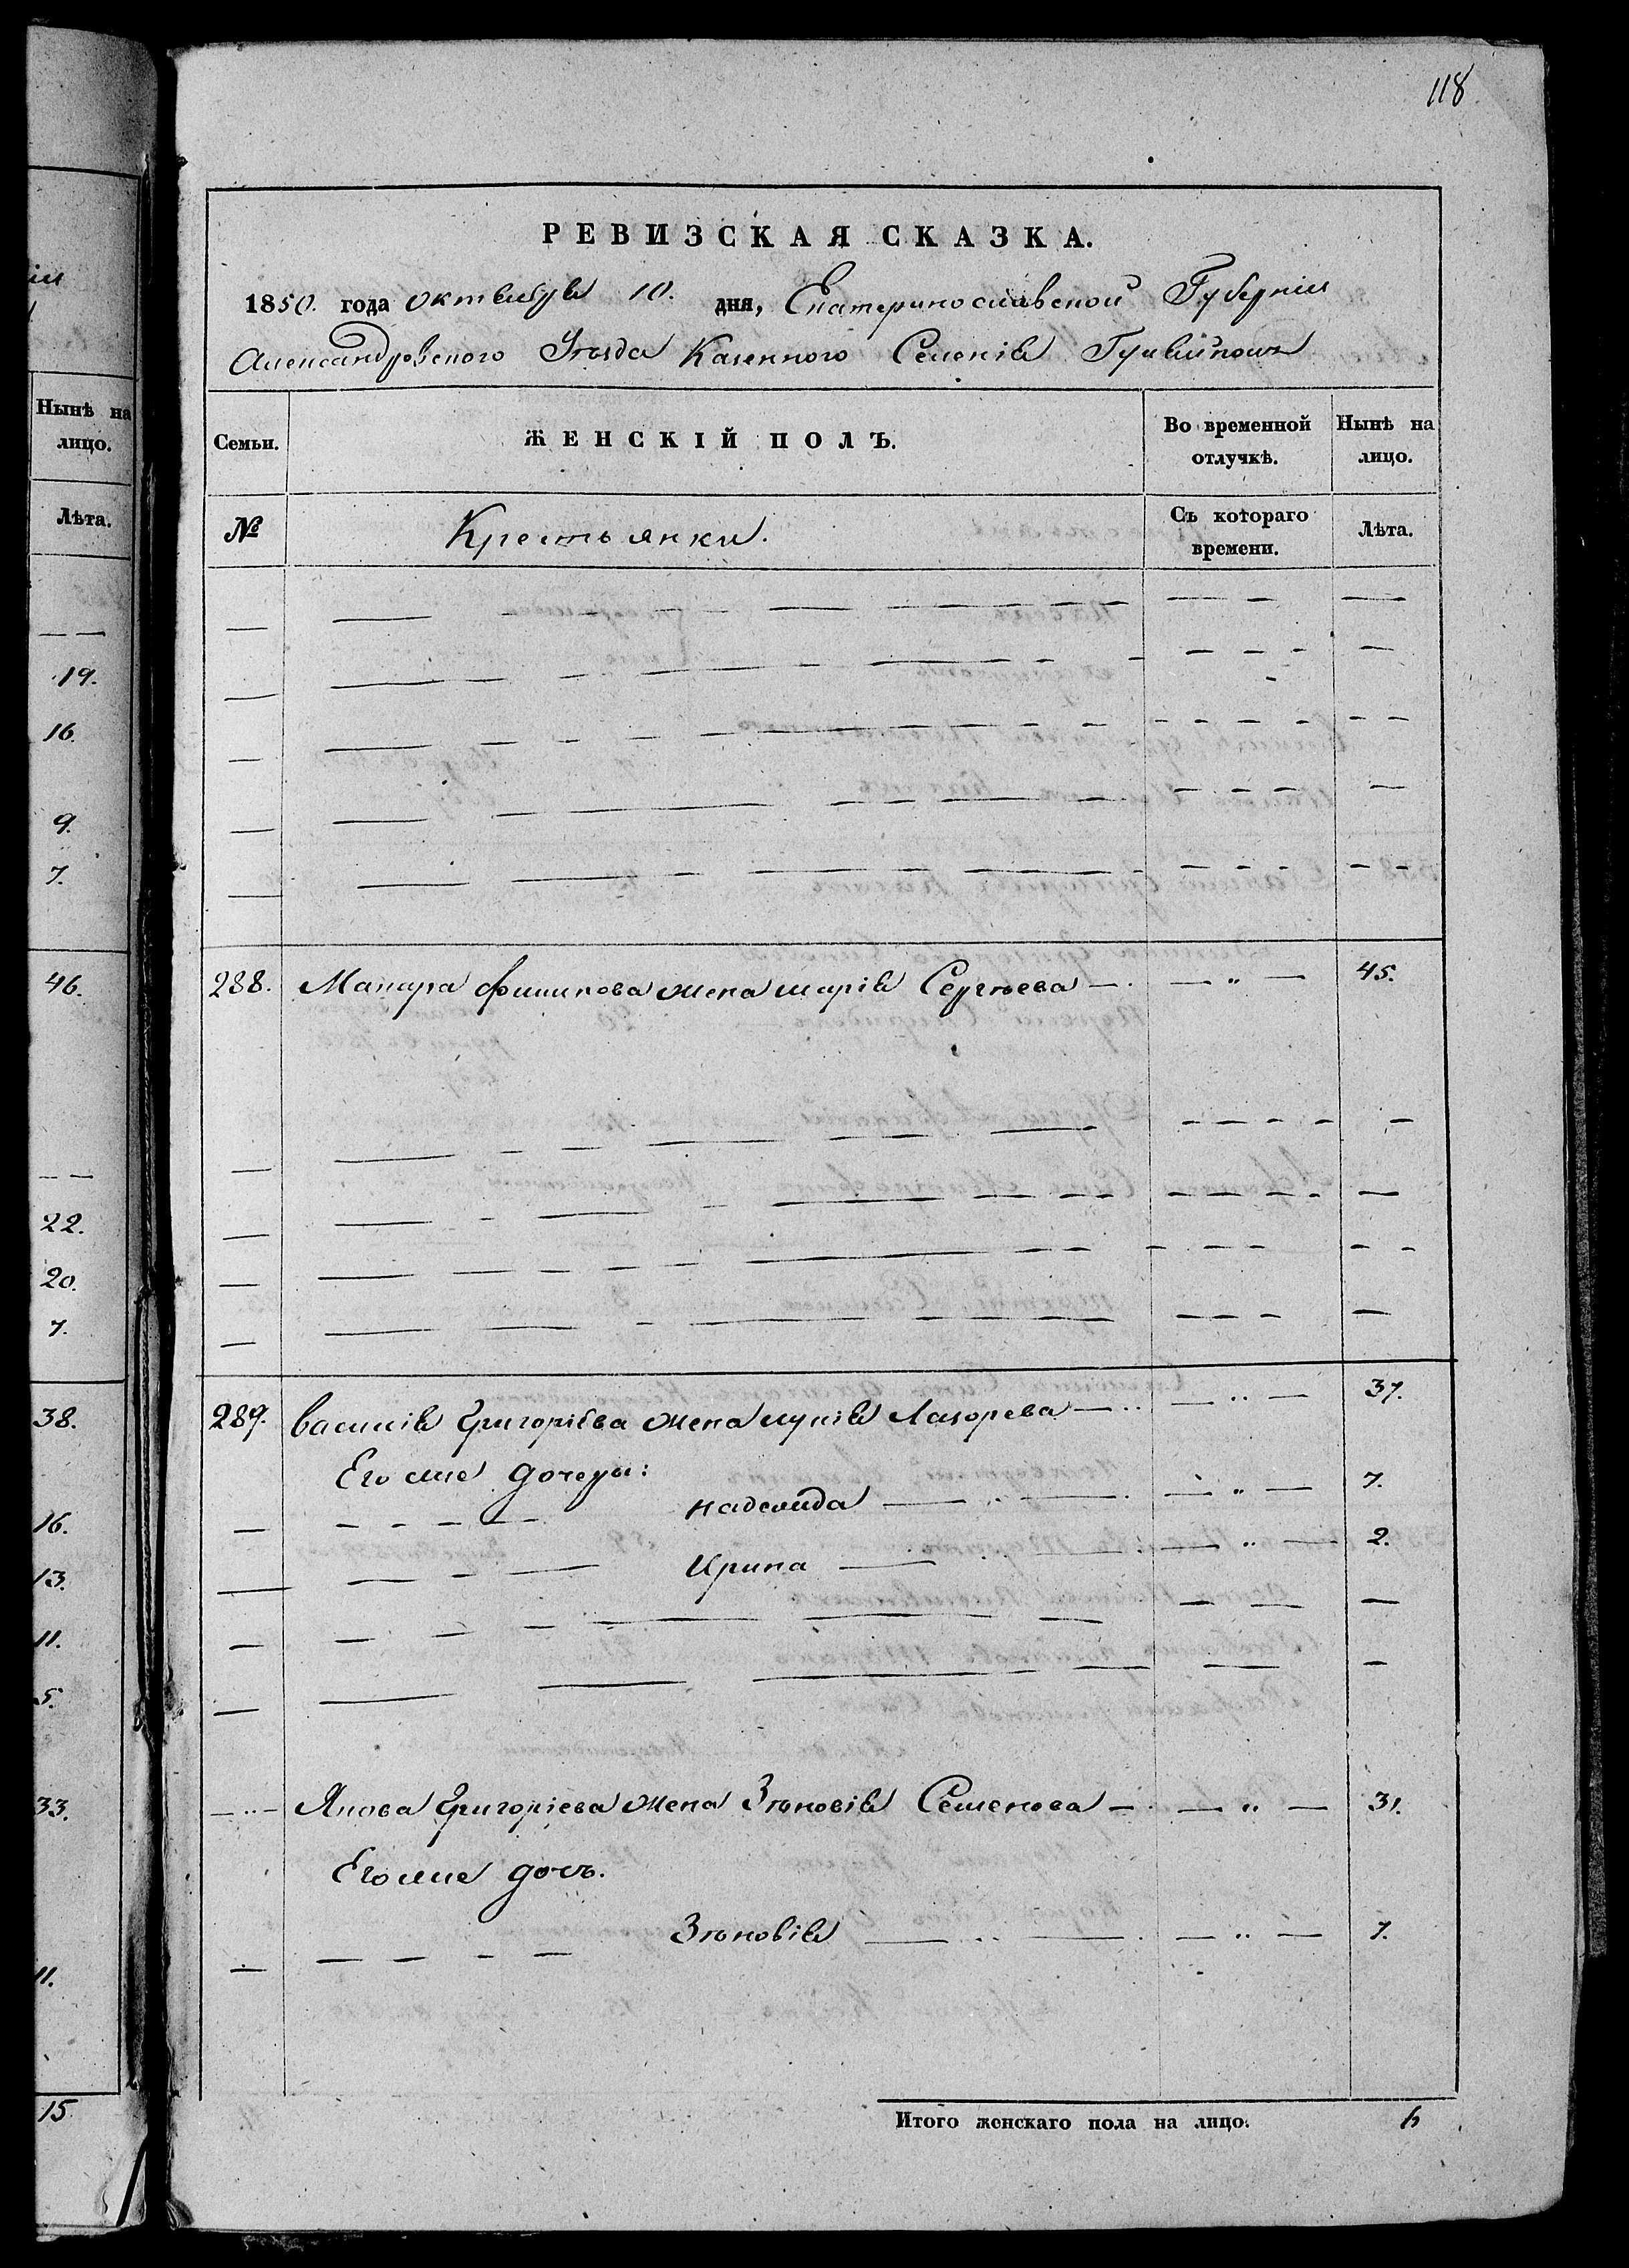 118
РЕВИЗСКАЯ СКАЗКА.
1850. года октября 10. дня, Екатеринославской Губерніи
Александровского Уѣзда Казенного Селенія Гуляйполя
Семьи. ЖЕНСКІЙ ПОЛЪ. Во временной отлучкѣ. Нынѣ на лицо.
№ Крестьянки. Съ котораго времени. Лѣта.
288. Макара Филипова жена марія Сергѣева — „ — 45.
289. василія Григоріева жена лукія Лазорева — „ — 37.
Его же дочери:
надежда — „ — 7.
Ирина — „ — 2.
— „ — Якова Григоріева жена Зѣновія Семенова — „ — 31.
Его же дочь.
Зѣновія — „ — 7.
Итого женскаго пола на лицо. 6
Нынѣ на лицо.
Лѣта.
19.
16.
9.
7.
46.
22.
20.
7.
38.
16.
13.
11.
5.
33.
11.
15